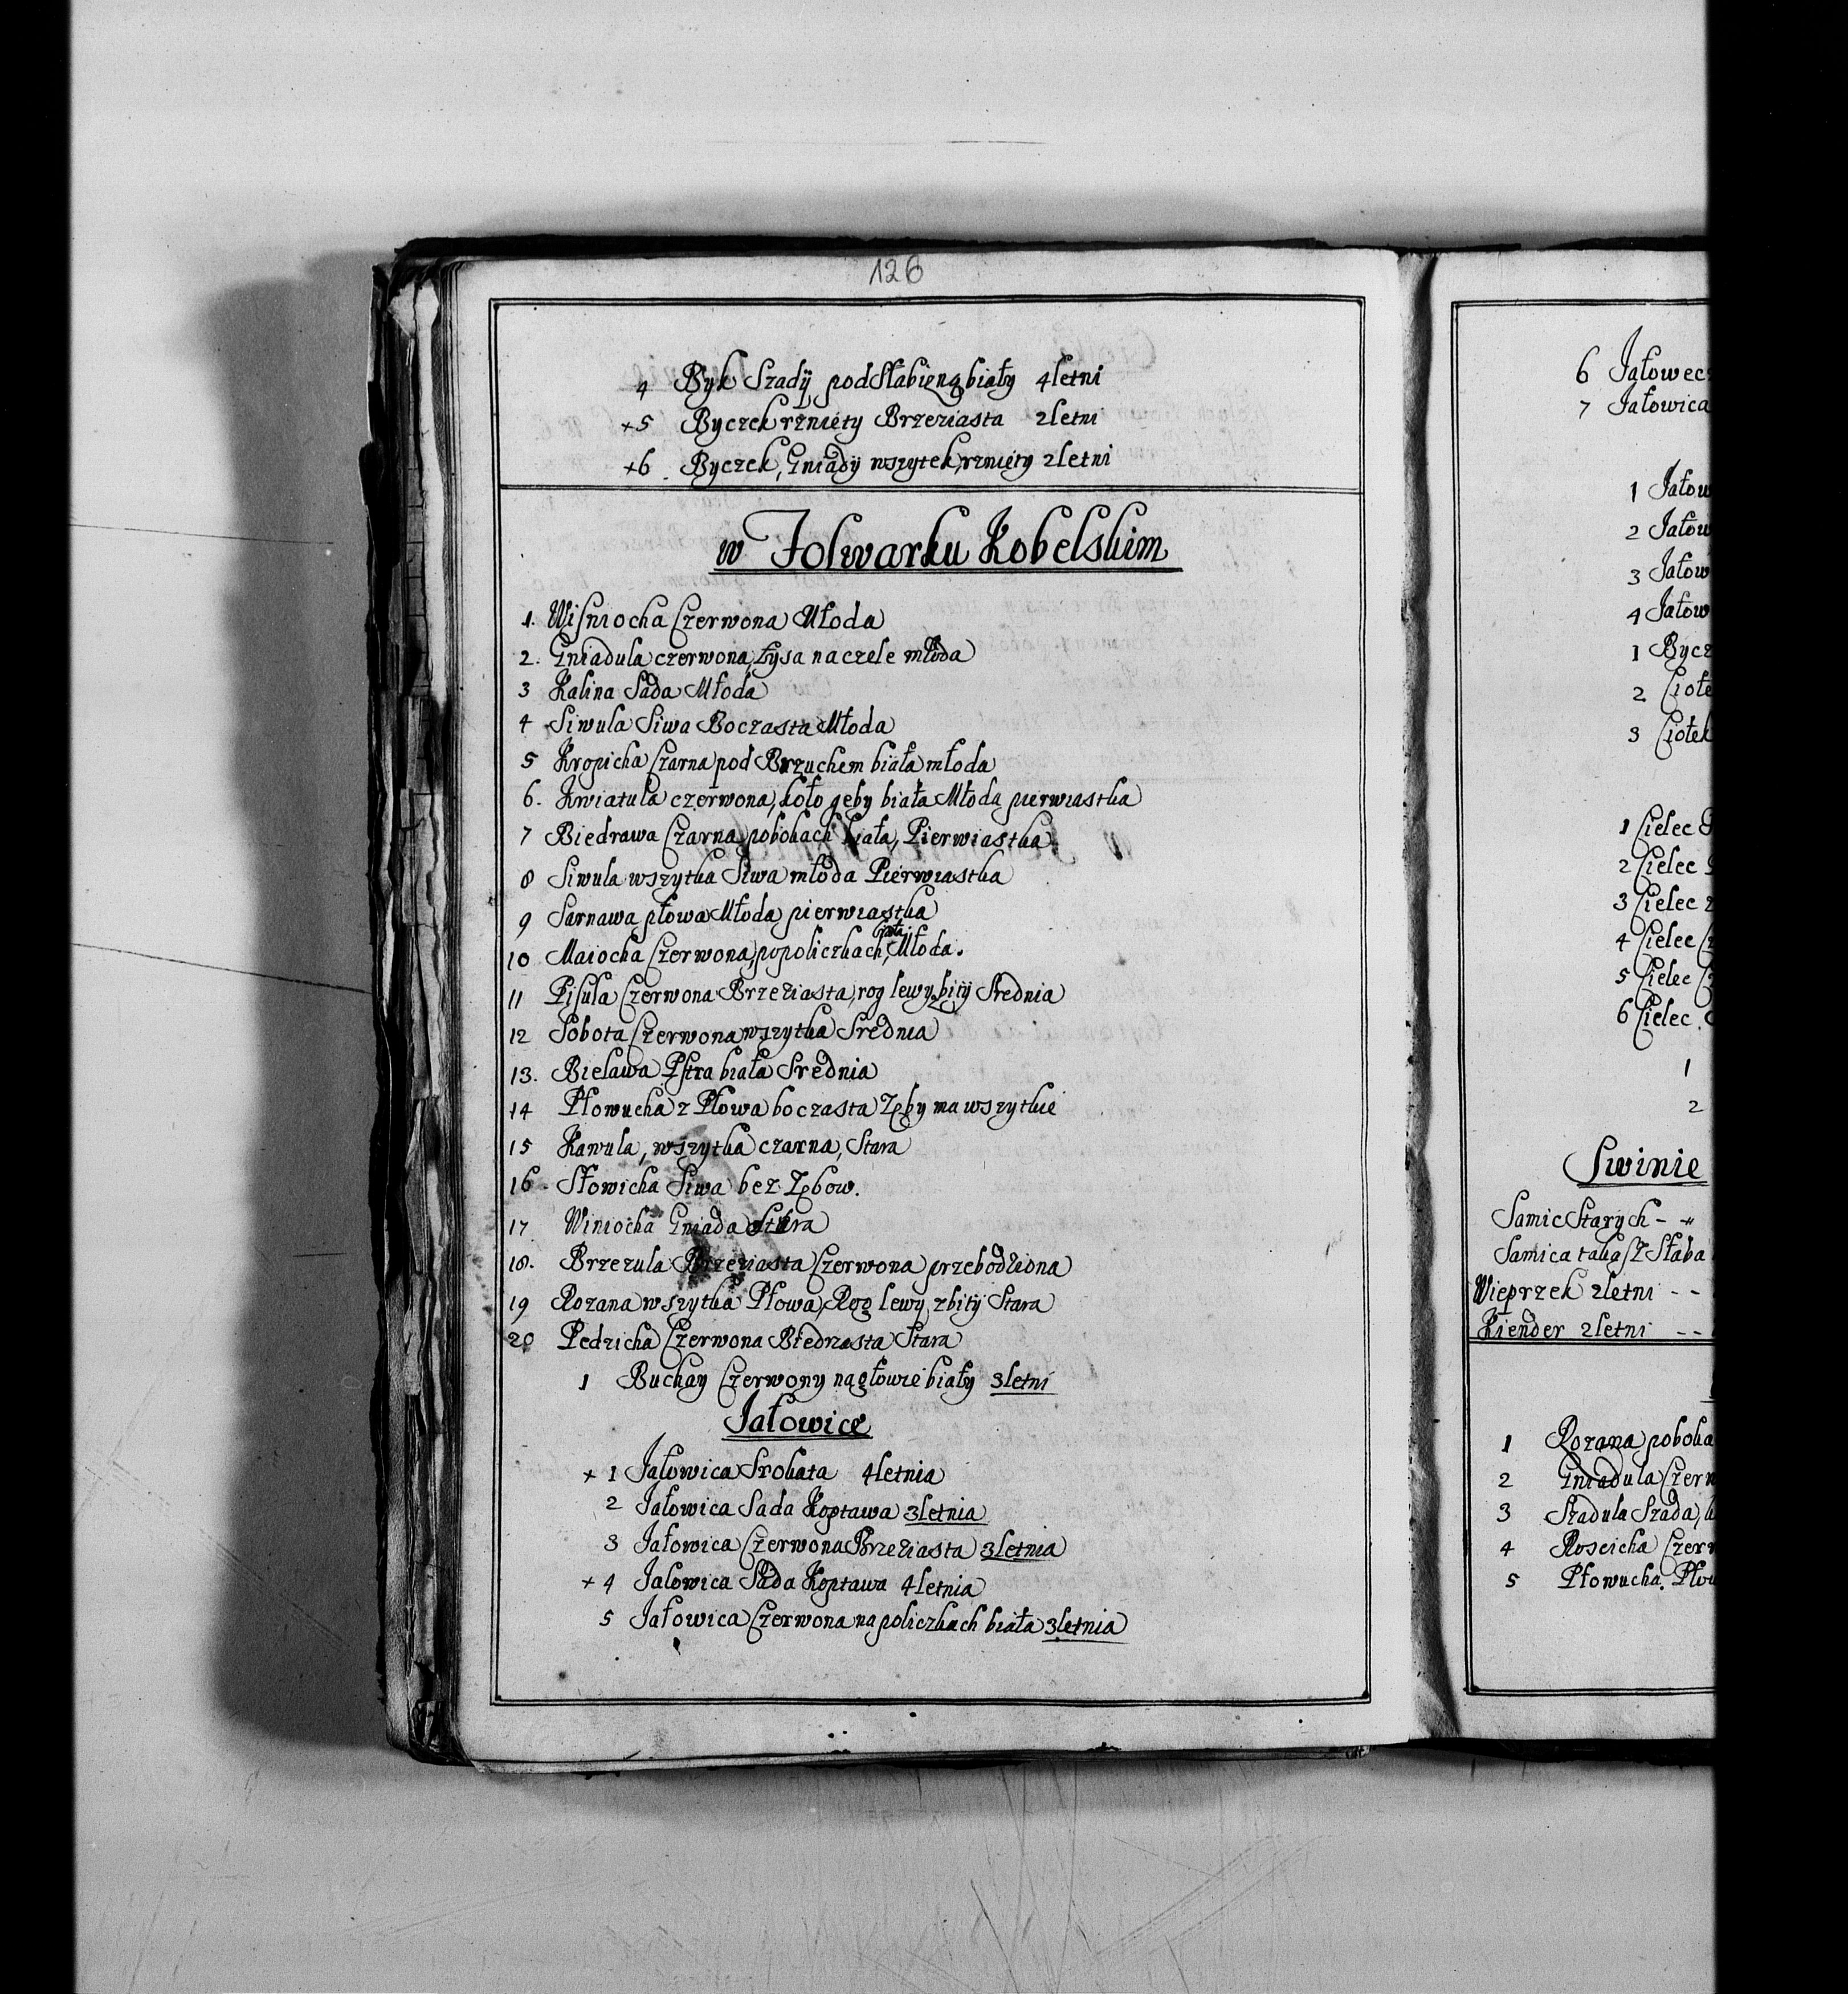 126
4 Byk Szadÿ pod Słabizną biały 4letni
+5 Byczek rznięty Brzeziasta 2letni
+6 Byczek, Gniadÿ wszytek, rznięty 2letni
w Folwarku Kobelskim
1. Wiſniocha Czerwona Młoda
2. Gniadula czerwona, Łysa na czele młoda
3 Kalina Sada Młoda
4 Siwula Siwa Boczasta Młoda
5 Kropicha Czarna pod Brzuchem biała młoda
6. Kwiatula czerwona, koło geby biała Młoda pierwiastka
7 Biedrawa Czarna po bokach biała, Pierwiastka
8 Siwula wszytka Siwa młoda Pierwiastka
9 Sarnawa płowa Młoda pierwiastka
10 Maiocha Czerwona, po policzkach, Młoda.
11 Piſula Czerwona Brzeziasta, rog lewy zbitÿ Srednia
12 Sobota Czerwona wszytka Srednia
13. Bielawa Pſtra biała Srednia
14 Płowucha z Płowa boczasta Zęby ma wszytkie
15 Kawula, wszytka czarna, Stara
16 Słowicha Siwa bez Zębow.
17 Winiocha Gniada Stara
18. Brzezula Brzeziasta Czerwona przebodziona
19 Rozana wszytka Płowa, Rog lewy, zbitÿ Stara
20 Pedzicha Czerwona Biedrzasta Stara
1 Buchay Czerwony na głowie biały 3letni
Jałowice
+ 1 Jałowica Srokata 4letnia
2 Jałowica Sada Koptawa 3letnia
3 Jałowica Czerwona Brzeziasta 3letnia
+ 4 Jalowica Sada Koptawa 4letnia
5 Jałowica Czerwona na policzkach biała 3letnia
6 Jałowec
7 Jałowica
1 Jałow
2 Jałow
3 Jałow
4 Jałow
1 Bycz
2 Ciołe
3 Ciołek
1 Cielec
2 Cielec
3 Cielec
4 Cielec
5 Cielec
6 Cielec
1
2
Swinie
Samic Starych - "
Samica takaſz Słaba
Wieprzek 2letni - -
Kiender 2letni - -
1 Rozana poboka
2 Gniadula Czerw
3 Szadula Szada,
4 Roscicha Czerw
5 Płowucha. Płow